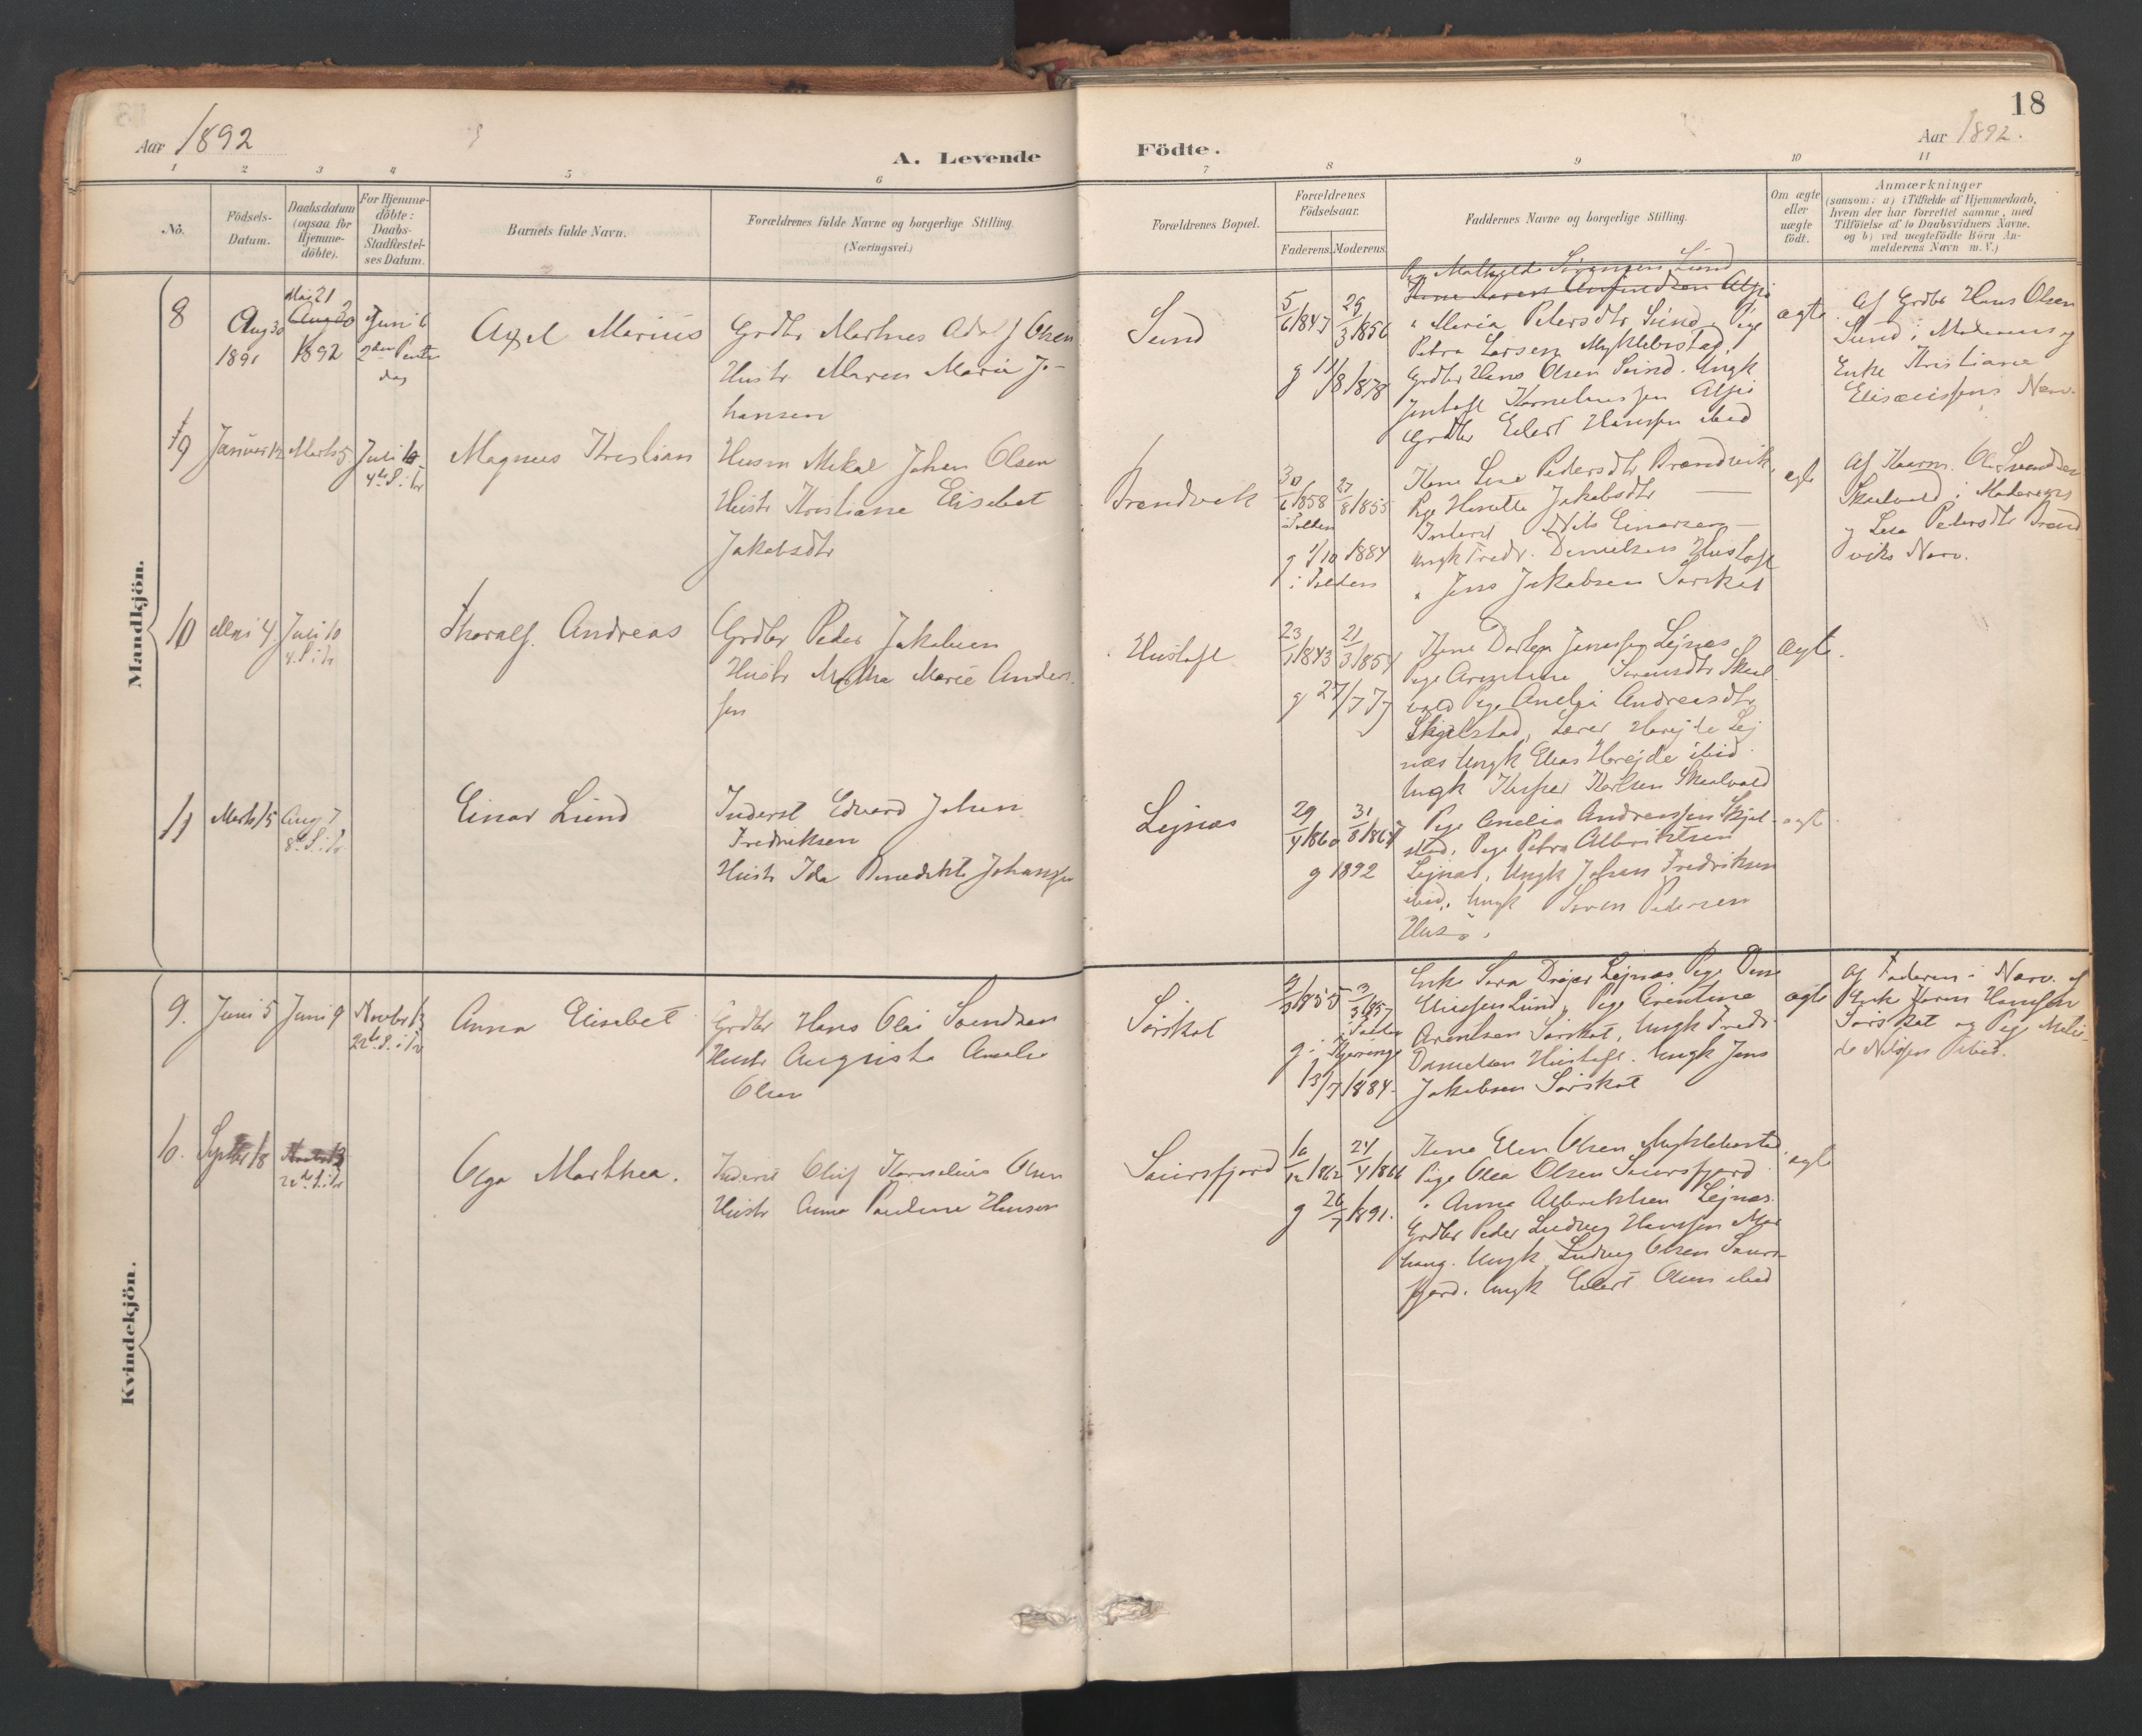 18
Aar 1892
A. Levende
Födte.
Aar 1892.
1 2 3 4 5 6 7 8 9 10 11
No.
Födsels-
Datum.
Daabsdatum
(ogsaa for
Hjemme-
döbte).
For Hjemme-
döbte:
Daabs-
Stadfæstel-
ses Datum.
Barnets fulde Navn.
Forældrenes fulde Navne og borgerlige Stilling.
(Næringsvei.)
Forældrenes Bopæl.
Forældrenes
Födselsaar.
Faderens. Moderens.
Faddernes Navne og borgerlige Stilling.
Om ægte
eller
uægte
födt.
Anmærkninger
(saasom: a) i Tilfælde af Hjemmedaab,
hvem der har forrettet samme, med
Tilföielse af to Daabsvidners Navne,
og b) ved uægtefödte Börn An-
melderens Navn m. V.)
Mandkjön.
8
Aug 30
1891
Mai 21
Aug 30
1892
Juni 6
2den Pintse
dag
Axel Marius
Grdbr Martnus Adolf Olsen
Hustr Maren Marie Jo-
hansen
Sund
5/6 1847
29/3 1856
g 11/8 1878
Pige Mathilde Sörensen Sund
" Maria Petersdtr Sund, Pige
Petra Larsen Myklebostad,
Grdbr Hans Olsen Sund. Ungk
Jentoft Kornelinssen Alsjö
Grdbr Edert Hanssen ibid
ægte
Af Grdbr Hans Olsen
Sund i Moderens og
Enke Kristiane
Elisæussens Nærv.
9
Januar 12
Marts 5
Juli 10
4de S. i Tr
Magnus Kristian
Husm Mikal Johan Olsen
Hustr Kristiane Elisabet
Jakobsdtr
Brændvik
30/6 1858
27/8 1855
i Folden
g 1/10 1884
i Folden
Kone Lise Pedersdtr Brændvik,
Pige Hanette Jakobsdtr —
Inderst Nils Einarsen —
Ungk Fredr. Danielsen Hustoft
" Jens Jakobsen Sörskot
ægte
Af Kaarm. Ole Svendsen
Skulvold i Moderens
og Lise Petersdtr Brænd
viks Nærv.
10
Mai 4.
Juli 10
4. S. i Tr
Thoralf Andreas
Grdbr Peder Jakobsen
Hustr Martha Marie Anders-
sen
Hustoft
23/1 1843
21/3 1854
g 27/7 77
Kone Dorthea Jenssen Lejnæs
Pige Arentine Sörensdtr Skul
vold Pige Anelia Andreasdtr
Skjelstad, Lærer Horejde Lej
næs Ungk Elias Horejde ibid.
Ungk Kasper Karlsen Skulvold
ægte.
11
Marts 15
Aug 7
8de S. i Tr
Einar Lund
Inderst Edvard Johan
Fredriksen
Hustr Ida Benedikte Johansen
Lejnæs
29/4 1860
31/8 1867
g 1892
Pige Anelia Andreassen Skjel-
stad, Pige Petra Albriktsen
Lejnæs, Ungk Johan Fredriksen
ibid, Ungk Sören Pedersen
Husö.
ægte
Kvindekjön.
9.
Juni 5
Juni 9
Novbr 13
22de S. i Tr
Anna Elisabet
Grdbr Hans Olai Svendsen
Hustr Augusta Amalie
Olsen
Sörskot
2/3 1855
3/3 1857
i Folden
g i Kjerringö
13/7 1884.
Enke Sara Dreyer Lejnæs Pige Oline
Elisæussen Lund, Pige Arentine
Arentsen Sörskot, Ungk Fredr.
Danielsen Hustoft. Ungk Jens
Jakobsen Sörskot
ægte
Af Faderen i Nærv. af
Enke Karen Hanssen
Sörskot og Pige Mathil-
de Nilssen ibid.
10.
Septbr 18
Novbr 13
22de S. i Tr
Olga Marthea.
Inderst Oluf Kornelius Olsen
Hustr Anna Pauline Hansen
Saursfjord
10/12 1862
24/4 1866
g 26/7 1891.
Kone Elen Olsen Myklebostad,
Pige Olea Olsen Saursfjord
" Anna Albriktsen Lejnæs.
Grdbr Peder Ludvig Hanssen Mar
haug. Ungk Ludvig Olsen Saurs-
fjord. Ungk Edert Olsen ibid
ægte